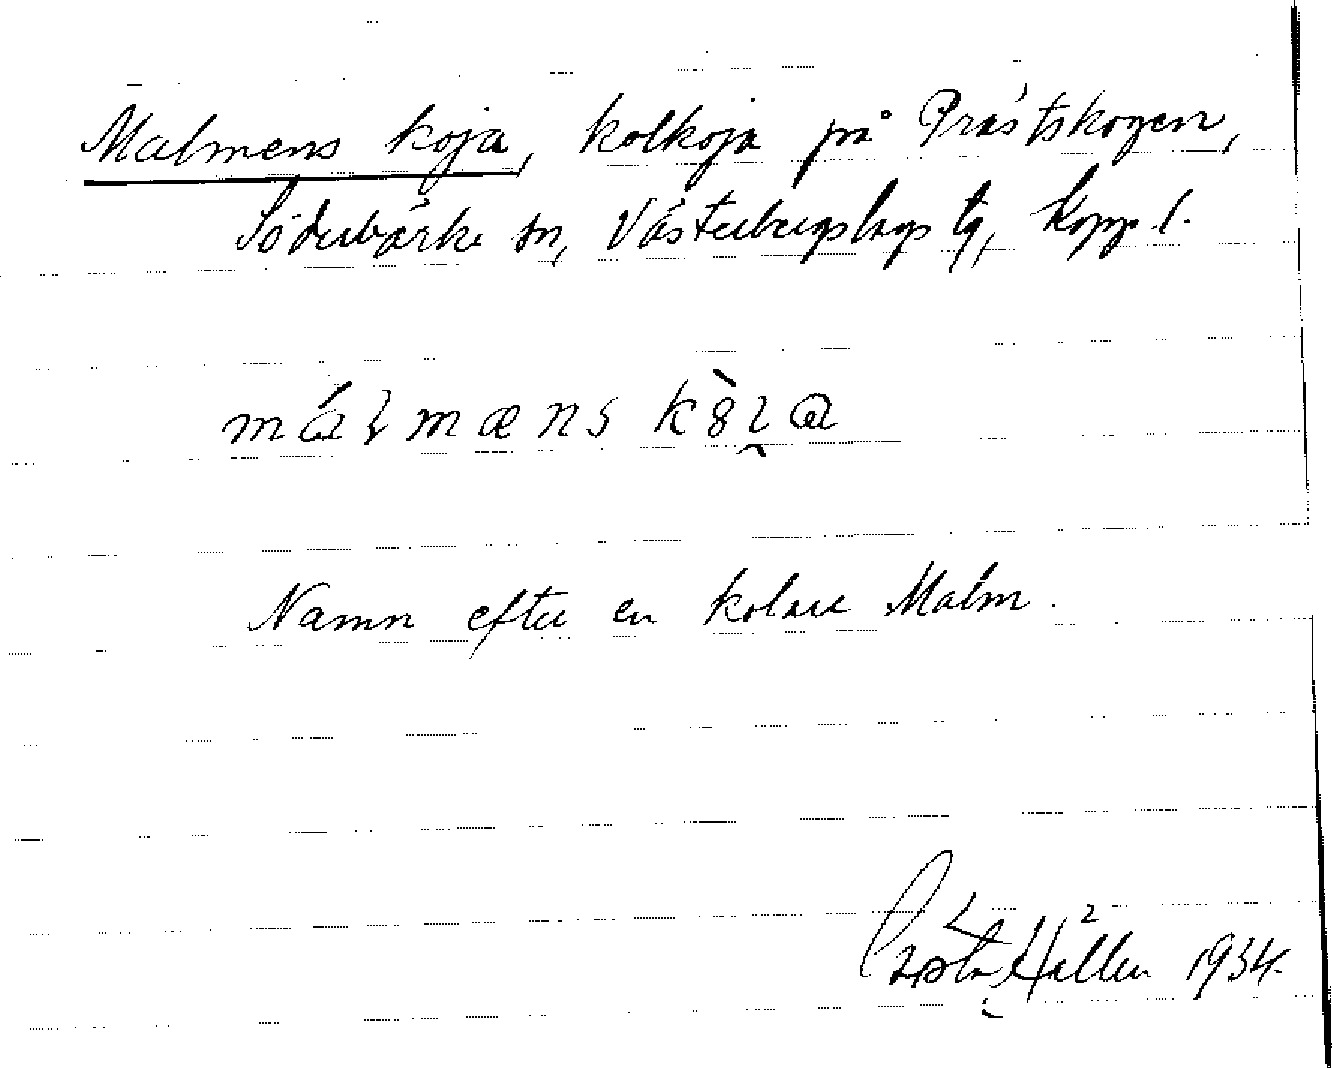 Malmens koja, kolkoja på Prästskogen,
Söderbärke sn, Västerbergslags tg, Kopp. l.
Namn efter en kolare Malm.
Gösta Hallén 1934.